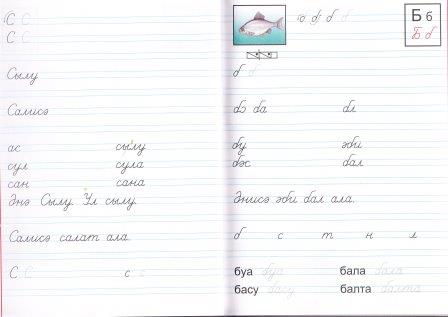 С С
С С
Сылу
Сәлисә
ас сылу
сул сула
сан сана
Әнә Сылу. Ул сылу.
Сәлисә салат ала.
С С с с
Б б
Б б
б б б б
б б
бә ба бл
бу әби
бәс бал
Әнисә әби бал ала.
б с т н л
буа буа бала бала
басу басу балта балта